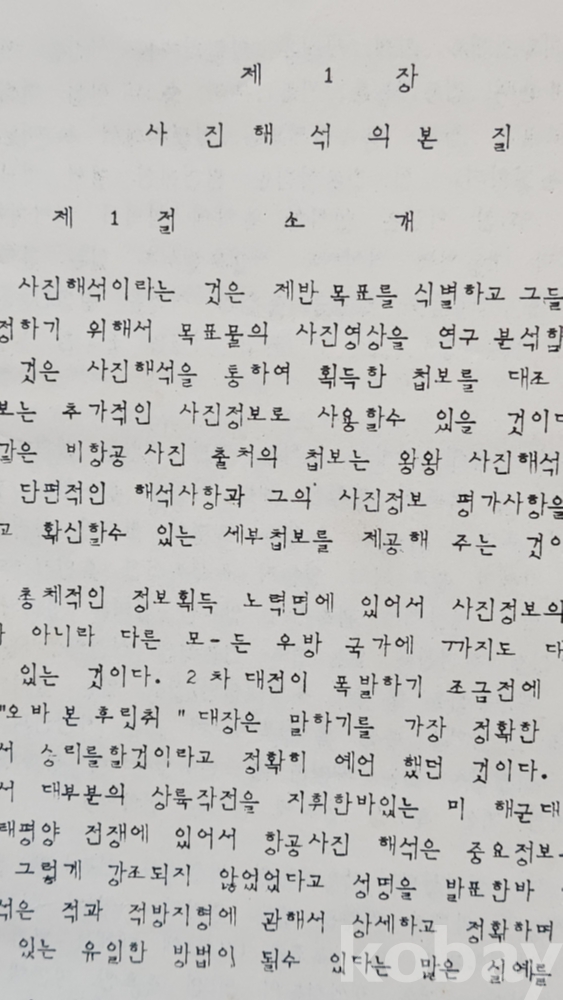 제 1 장
사 진 해 석 의 본 질
제 1 절 소 개
사진해석이라는 것은 제반 목표를 식별하고 그들
정하기 위해서 목표물의 사진영상을 연구 분석함
것은 사진해석을 통하여 획득한 첩보를 대조
보는 추가적인 사진정보로 사용할수 있을 것이다
같은 비항공 사진 출처의 첩보는 왕왕 사진해석
단편적인 해석사항과 그의 사진정보 평가사항을
고 확신할수 있는 세부첩보를 제공해 주는 것이
총체적인 정보획득 노력면에 있어서 사진정보의
아니라 다른 모-든 우방 국가에 까지도 다
있는 것이다. 2 차 대전이 폭발하기 조금전에
"오 바 본 후릿취 " 대장은 말하기를 가장 정확한
서 승리를할것이라고 정확히 예언 했던 것이다.
서 대부분의 상륙작전을 지휘한바있는 미 해군대
태평양 전쟁에 있어서 항공사진 해석은 중요정보
그렇게 강조되지 않었었다고 성명을 발표한바
석은 적과 적방지형에 관해서 상세하고 정확하며
있는 유일한 방법이 될수 있다는 많은 실예를
kobay